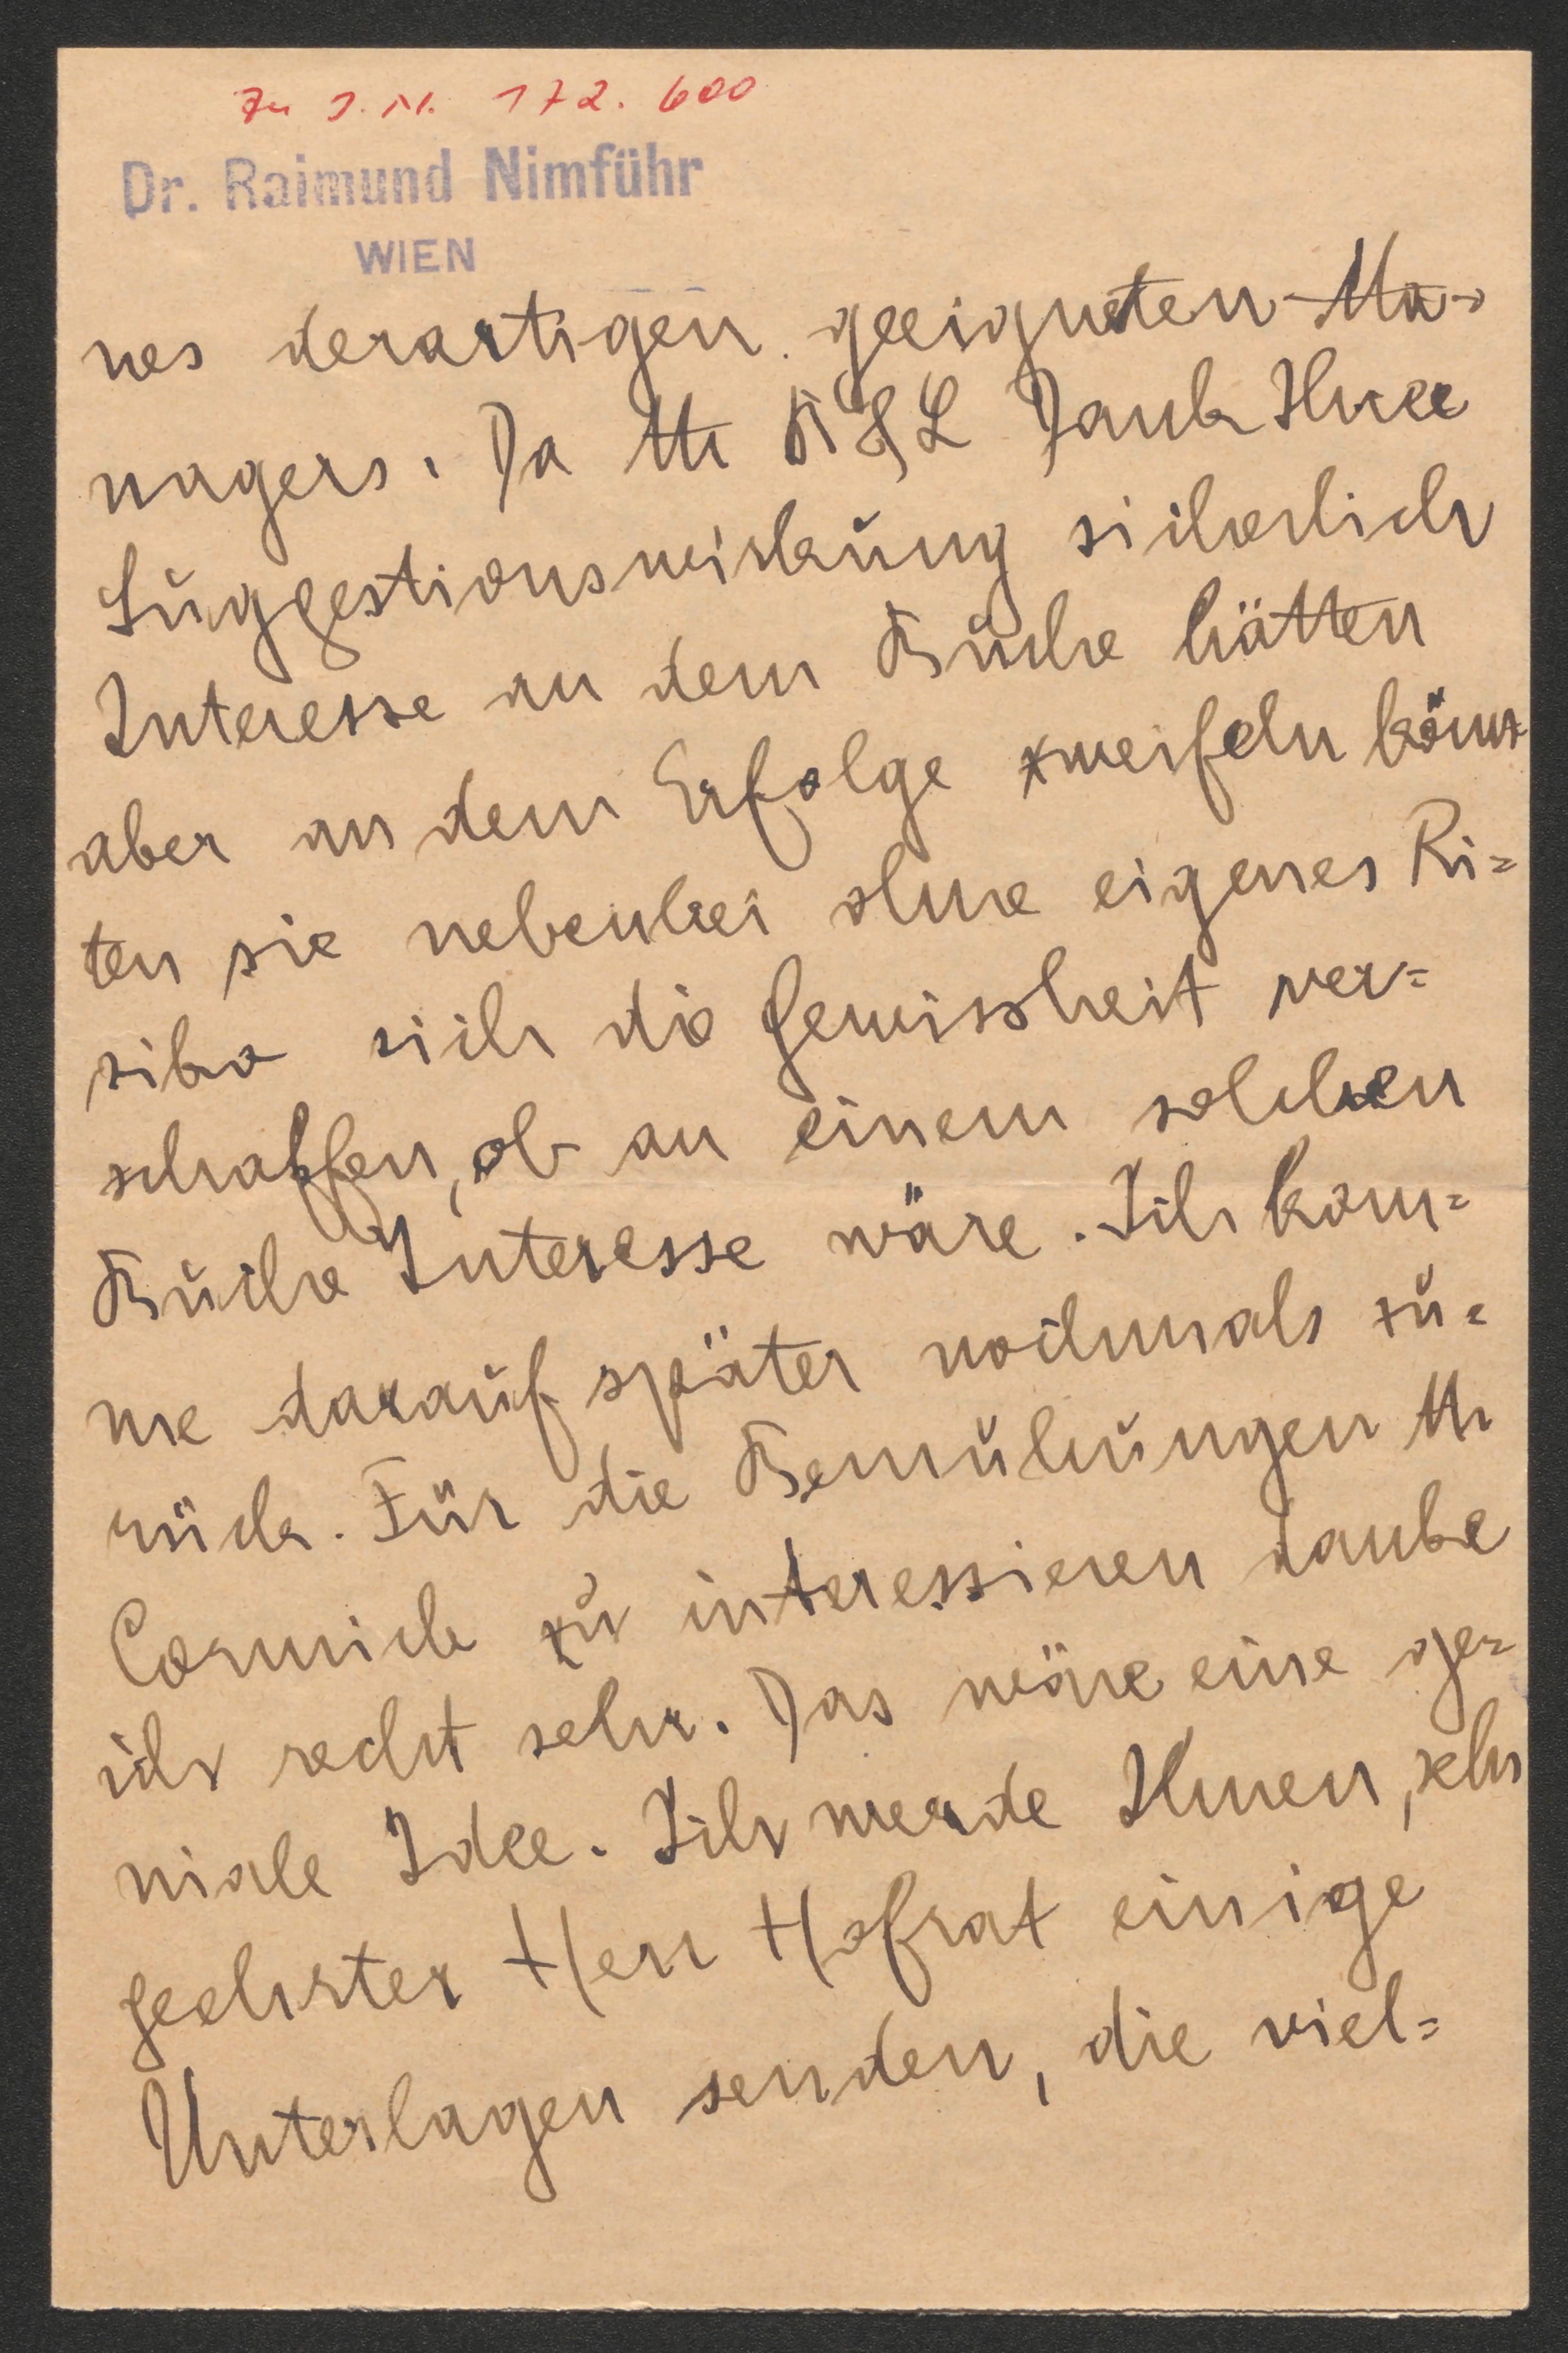 Zu I.N. 172.600
Dr. Raimund Nimführ
WIEN
nes derartigen geeigneten Ma-
nagers. Da Mr K & L Dank Ihrer
Suggestionswirkung sicherlich
Interesse an dem Buche hätten
aber an dem Erfolge zweifeln könn-
ten sie nebenbei ohne eigenes Ri=
siko sich die Gewissheit ver=
schaffen, ob an einem solchen
Buche Interesse wäre. Ich kom=
me darauf später nochmals zu=
rück. Für die Bemühungen Mr
Cormick zu interessieren danke
ich recht sehr. Das wäre eine ge=
niale Idee. Ich werde Ihnen, sehr
geehrter Herr Hofrat einige
Unterlagen senden, die viel=